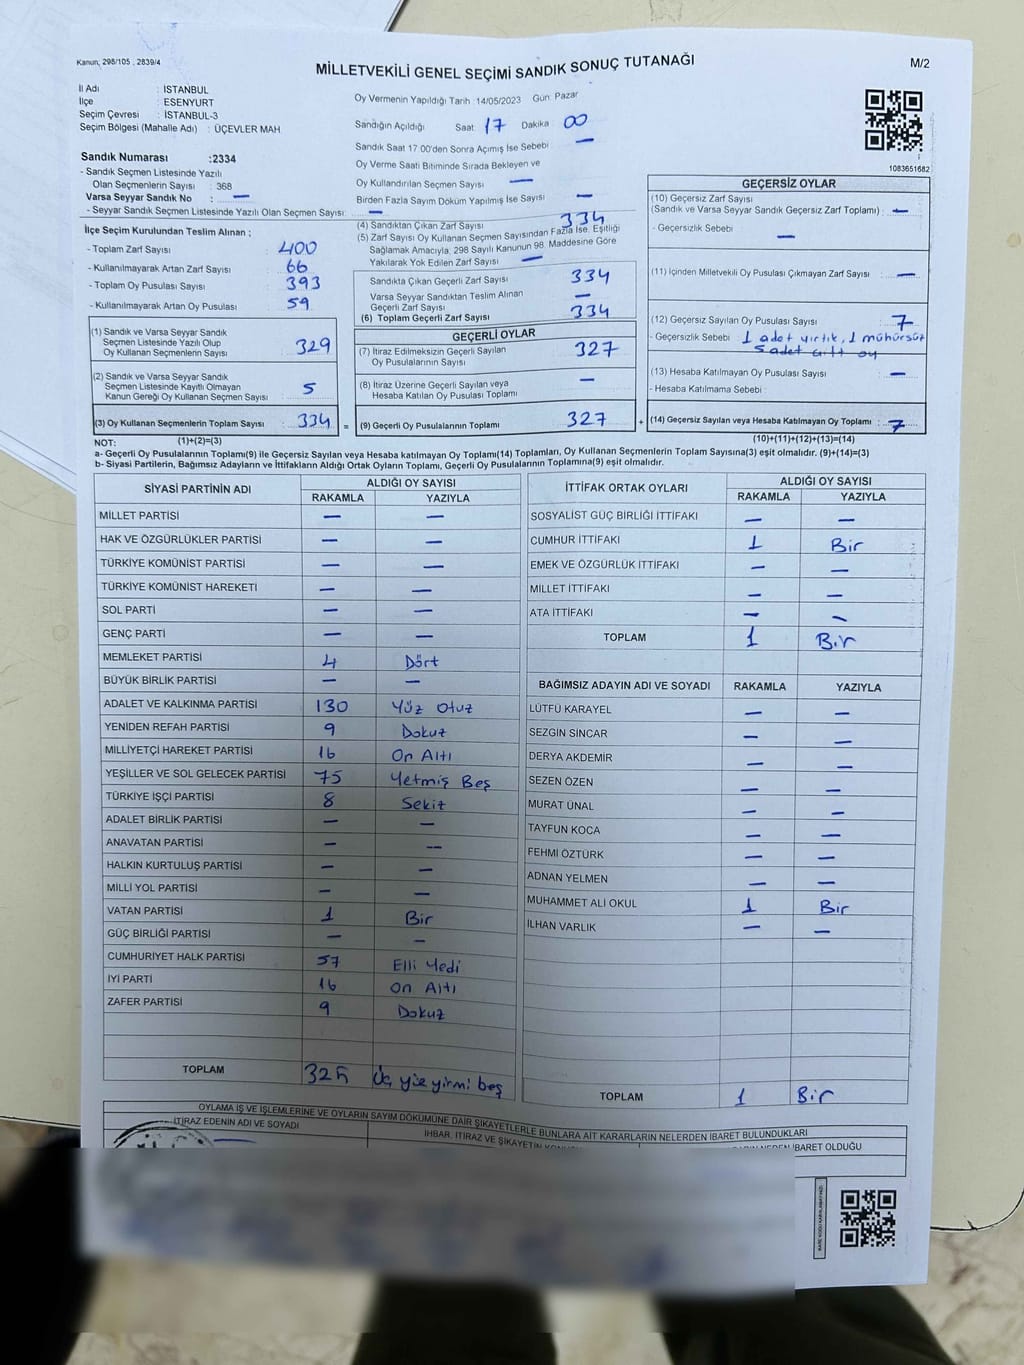 Kanun; 298/105 , 2839/4
MİLLETVEKİLİ GENEL SEÇİMİ SANDIK SONUÇ TUTANAĞI
M/2
İl Adı : İSTANBUL
İlçe : ESENYURT
Seçim Çevresi : İSTANBUL-3
Seçim Bölgesi (Mahalle Adı) : ÜÇEVLER MAH
Sandık Numarası :2334
- Sandık Seçmen Listesinde Yazılı
Olan Seçmenlerin Sayısı : 368
Varsa Seyyar Sandık No : —
- Seyyar Sandık Seçmen Listesinde Yazılı Olan Seçmen Sayısı: —
İlçe Seçim Kurulundan Teslim Alınan ;
- Toplam Zarf Sayısı : 400
- Kullanılmayarak Artan Zarf Sayısı : 66
- Toplam Oy Pusulası Sayısı : 393
- Kullanılmayarak Artan Oy Pusulası : 59
(1) Sandık ve Varsa Seyyar Sandık
Seçmen Listesinde Yazılı Olup
Oy Kullanan Seçmenlerin Sayısı : 329
(2) Sandık ve Varsa Seyyar Sandık
Seçmen Listesinde Kayıtlı Olmayan
Kanun Gereği Oy Kullanan Seçmen Sayısı : 5
(3) Oy Kullanan Seçmenlerin Toplam Sayısı : 334 =
(1)+(2)=(3)
Oy Vermenin Yapıldığı Tarih :14/05/2023 Gün: Pazar
Sandığın Açıldığı Saat: 17 Dakika : 00
Sandık Saat 17:00'den Sonra Açımış İse Sebebi : —
Oy Verme Saati Bitiminde Sırada Bekleyen ve
Oy Kullandırılan Seçmen Sayısı : —
Birden Fazla Sayım Döküm Yapılmış İse Sayısı : —
(4) Sandıktan Çıkan Zarf Sayısı : 334
(5) Zarf Sayısı Oy Kullanan Seçmen Sayısından Fazla İse, Eşitliği
Sağlamak Amacıyla, 298 Sayılı Kanunun 98. Maddesine Göre
Yakılarak Yok Edilen Zarf Sayısı : —
Sandıkta Çıkan Geçerli Zarf Sayısı : 334
Varsa Seyyar Sandıktan Teslim Alınan
Geçerli Zarf Sayısı : —
(6) Toplam Geçerli Zarf Sayısı : 334
GEÇERLİ OYLAR
(7) İtiraz Edilmeksizin Geçerli Sayılan
Oy Pusulalarının Sayısı : 327
(8) İtiraz Üzerine Geçerli Sayılan veya
Hesaba Katılan Oy Pusulası Toplamı : —
(9) Geçerli Oy Pusulalarının Toplamı : 327 +
1083651682
GEÇERSİZ OYLAR
(10) Geçersiz Zarf Sayısı
(Sandık ve Varsa Seyyar Sandık Geçersiz Zarf Toplamı) : —
- Geçersizlik Sebebi : —
(11) İçinden Milletvekili Oy Pusulası Çıkmayan Zarf Sayısı : —
(12) Geçersiz Sayılan Oy Pusulası Sayısı : 7
- Geçersizlik Sebebi : 1 adet yırtık, 1 mühürsüz
5 adet çift oy
(13) Hesaba Katılmayan Oy Pusulası Sayısı : —
- Hesaba Katılmama Sebebi :
(14) Geçersiz Sayılan veya Hesaba Katılmayan Oy Toplamı : 7
(10)+(11)+(12)+(13)=(14)
NOT:
a- Geçerli Oy Pusulalarının Toplamı(9) ile Geçersiz Sayılan veya Hesaba katılmayan Oy Toplamı(14) Toplamları, Oy Kullanan Seçmenlerin Toplam Sayısına(3) eşit olmalıdır. (9)+(14)=(3)
b- Siyasi Partilerin, Bağımsız Adayların ve İttifakların Aldığı Ortak Oyların Toplamı, Geçerli Oy Pusulalarının Toplamına(9) eşit olmalıdır.
SİYASİ PARTİNİN ADI ALDIĞI OY SAYISI
RAKAMLA YAZIYLA
MİLLET PARTİSİ — —
HAK VE ÖZGÜRLÜKLER PARTİSİ — —
TÜRKİYE KOMÜNİST PARTİSİ — —
TÜRKİYE KOMÜNİST HAREKETİ — —
SOL PARTİ — —
GENÇ PARTİ — —
MEMLEKET PARTİSİ 4 Dört
BÜYÜK BİRLİK PARTİSİ — —
ADALET VE KALKINMA PARTİSİ 130 Yüz Otuz
YENİDEN REFAH PARTİSİ 9 Dokuz
MİLLİYETÇİ HAREKET PARTİSİ 16 On Altı
YEŞİLLER VE SOL GELECEK PARTİSİ 75 Yetmiş Beş
TÜRKİYE İŞÇİ PARTİSİ 8 Sekiz
ADALET BİRLİK PARTİSİ — —
ANAVATAN PARTİSİ — —
HALKIN KURTULUŞ PARTİSİ — —
MİLLİ YOL PARTİSİ — —
VATAN PARTİSİ 1 Bir
GÜÇ BİRLİĞİ PARTİSİ — —
CUMHURİYET HALK PARTİSİ 57 Elli Yedi
İYİ PARTİ 16 On Altı
ZAFER PARTİSİ 9 Dokuz
TOPLAM 325 Üç yüz yirmi beş
İTTİFAK ORTAK OYLARI ALDIĞI OY SAYISI
RAKAMLA YAZIYLA
SOSYALİST GÜÇ BİRLİĞİ İTTİFAKI — —
CUMHUR İTTİFAKI 1 Bir
EMEK VE ÖZGÜRLÜK İTTİFAKI — —
MİLLET İTTİFAKI — —
ATA İTTİFAKI — —
TOPLAM 1 Bir
BAĞIMSIZ ADAYIN ADI VE SOYADI RAKAMLA YAZIYLA
LÜTFÜ KARAYEL — —
SEZGİN SİNCAR — —
DERYA AKDEMİR — —
SEZEN ÖZEN — —
MURAT ÜNAL — —
TAYFUN KOCA — —
FEHMİ ÖZTÜRK — —
ADNAN YELMEN — —
MUHAMMET ALİ OKUL 1 Bir
İLHAN VARLIK — —
TOPLAM 1 Bir
OYLAMA İŞ VE İŞLEMLERİNE VE OYLARIN SAYIM DÖKÜMÜNE DAİR ŞİKAYETLERLE BUNLARA AİT KARARLARIN NELERDEN İBARET BULUNDUKLARI
İTİRAZ EDENİN ADI VE SOYADI
İHBAR, İTİRAZ VE ŞİKAYETİN
İBARET OLDUĞU